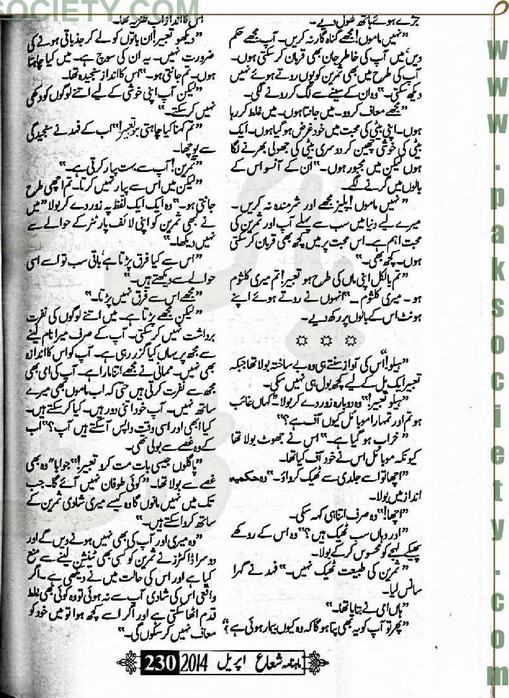 SOCIETY.COM
جڑے ہوئے ہاتھ کھول دیے۔
"نہیں ماموں! مجھے گناہ گار نہ کریں۔ آپ مجھے حکم
دیں میں آپ کی خاطر جان بھی قربان کر سکتی ہوں۔
آپ کی طرح میں بھی ثمرین کو یوں روتے ہوئے نہیں
دیکھ سکتی۔" وہ ان کے سینے سے لگ کر رونے لگی۔
"مجھے معاف کردو۔ میں جانتا ہوں۔ میں غلط کر رہا
ہوں۔ اپنی بیٹی کی محبت میں خود غرض ہو گیا ہوں۔ ایک
بیٹی کی خوشی چھین کر دوسری بیٹی کی جھولی بھرنے لگا
ہوں لیکن میں مجبور ہوں۔" ان کے آنسو اس کے
بالوں میں گرنے لگے۔
"نہیں ماموں! پلیز مجھے اور شرمندہ نہ کریں۔
میرے لیے دنیا میں سب سے پہلے آپ اور ثمرین کی
محبت اہم ہے۔ اس محبت پر میں کچھ بھی قربان کر سکتی
ہوں۔ کچھ بھی۔"
"تم بالکل اپنی ماں کی طرح ہو تعبیر! تم میری کلثوم
ہو۔ میری کلثوم۔" انہوں نے روتے ہوئے اپنے
ہونٹ اس کے بالوں پر رکھ دیے۔
☼ ☼ ☼
"ہیلو! اس کی آواز سنتے ہی وہ بے ساختہ بولا تھا جبکہ
تعبیر ایک پل کے لیے کچھ بول ہی نہیں سکی۔
"ہیلو تعبیر!" وہ دوبارہ زور دے کر بولا "کہاں غائب
ہو تم اور تمہارا موبائل کیوں آف ہے؟"
"خراب ہو گیا ہے۔" اس نے جھوٹ بولا تھا
کیونکہ موبائل اس نے خود آف کیا تھا۔
"اچھا تو اسے جلدی سے ٹھیک کرواؤ۔" وہ حکمیہ
انداز میں بولا۔
"اچھا!" وہ صرف اتنا ہی کہہ سکی۔
"اور وہاں سب ٹھیک ہیں؟" وہ اس کے روکھے
پھیکے لہجے کو محسوس کر کے بولا۔
"ثمرین کی طبیعت ٹھیک نہیں۔" فہد نے گہرا
سانس لیا۔
"ہاں امی نے بتایا تھا۔"
"پھر تو آپ کو یہ بھی پتا ہو گا کہ وہ کیوں بیمار ہوئی ہے؟"
اس کا انداز اب طنزیہ تھا۔
"دیکھو تعبیر! ان باتوں کو لے کر جذباتی ہونے کی
ضرورت نہیں۔ یہ ان کی سوچ ہے۔ میں کیا چاہتا
ہوں۔ تم جانتی ہو۔" اس کا انداز سنجیدہ تھا۔
"لیکن آپ اپنی خوشی کے لیے اتنے لوگوں کو دکھی
نہیں کر سکتے۔"
"تم کہنا کیا چاہتی ہو تعبیر!" اب کے فہد نے سنجیدگی
سے پوچھا۔
"ثمرین! آپ سے بہت پیار کرتی ہے۔"
"لیکن میں اس سے پیار نہیں کرتا۔ تم اچھی طرح
جانتی ہو۔" وہ ایک ایک لفظ پہ زور دے کر بولا "میں
نے کبھی ثمرین کو اپنی لائف پارٹنر کے حوالے سے
نہیں دیکھا۔"
"اس سے کیا فرق پڑتا ہے، باقی سب تو اسے اسی
حوالے سے دیکھتے ہیں۔"
"مجھے اس سے فرق نہیں پڑتا۔"
"لیکن مجھے پڑتا ہے۔ میں اتنے لوگوں کی نفرت
برداشت نہیں کر سکتی۔ آپ کے صرف میرا نام لینے
سے مجھ پر یہاں کیا گزر رہی ہے۔ آپ کو اس کا اندازہ
بھی نہیں۔ ممانی نے مجھے اتنا مارا ہے۔ آپ کی امی بھی
مجھ سے نفرت کرتی ہیں حتی کہ اب ماموں بھی میرے
ساتھ نہیں۔ آپ خود اتنی دور ہیں۔ کیا کر سکتے ہیں۔
کیا ابھی اور اسی وقت واپس آ سکتے ہیں آپ؟" اب
کے وہ غصے سے بولی تھی۔
"پاگلوں جیسی بات مت کرو تعبیر!" جواباً وہ بھی
غصے سے بولا تھا۔ "کوئی طوفان نہیں آئے گا۔ جب
تک میں نہیں مانوں گا وہ کیسے میری شادی ثمرین کے
ساتھ کروا سکتے ہیں۔"
"وہ میری اور آپ کی شادی بھی نہیں ہونے دیں گے اور
دوسرا ڈاکٹرز نے ثمرین کو کسی بھی ٹینشن لینے سے منع
کیا ہے اور اس کی حالت میں نے دیکھی ہے۔ اگر
واقعی اس کی شادی آپ سے نہ ہوئی تو وہ کوئی بھی غلط
قدم اٹھا سکتی ہے اور اگر اسے کچھ ہوا تو میں خود کو
معاف نہیں کر سکوں گی۔"
ماہنامہ شعاع اپریل 2014 230
www.paksociety.com